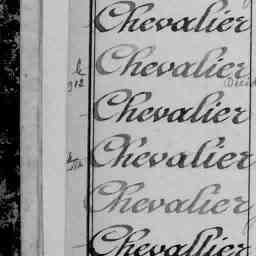 Chevalier
Chevalier
Chevalier
Chevalier
Chevalier
Chevallier